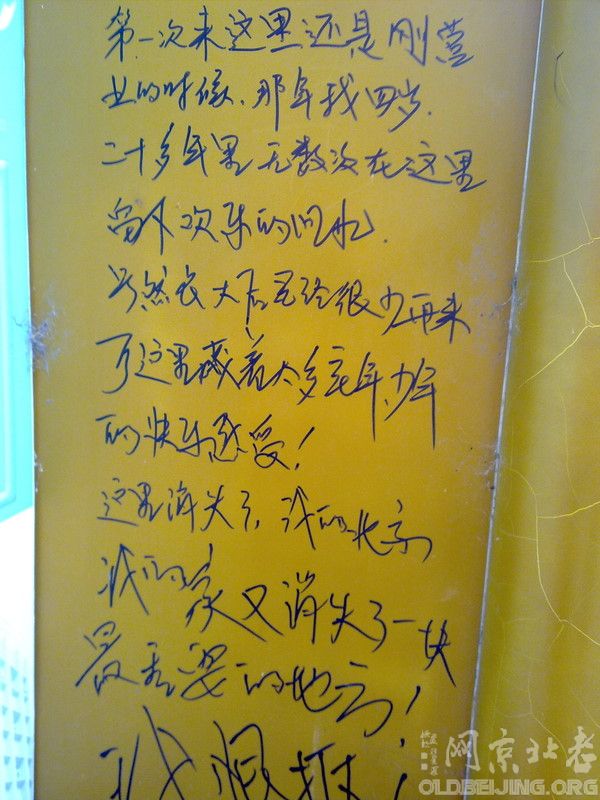 第一次来这里还是刚营
业的时候，那年我四岁．
二十多年里无数次在这里
留下欢乐的回忆．
虽然长大后已经很少再来
了这里藏着太多童年、少年
的快乐感受！
这里消失了，我的北京
我的家又消失了一块
最重要的地方！
我恨拆！
老北京网
OLDBEIJING.ORG